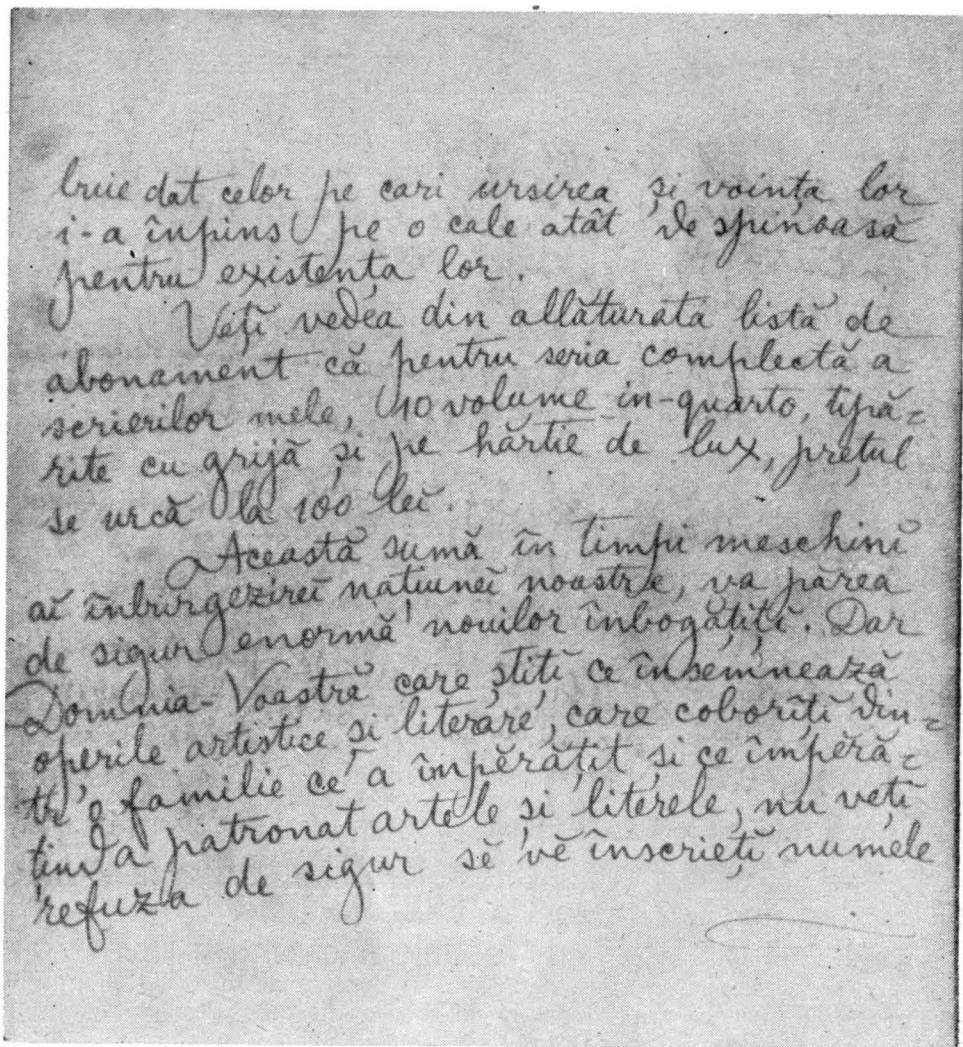 bruie dat celor pe cari ursirea și voința lor
i-a înpins pe o cale atât de spinoasă
pentru existența lor.
Veți vedea din allăturata listă de
abonament că pentru seria complectă a
scrierilor mele, 10 volume in-quarto, tipă=
rite cu grijă și pe hârtie de lux, prețul
se urcă la 100 lei.
Această sumă în timpii meschinĭ
aĭ înburgezireĭ națiuneĭ noastre, va părea
de sigur enormă nouilor înbogățițĭ. Dar
Domnia-Voastră care știțĭ ce însemnează
operile artistice și literare, care coborîțĭ din=
tr'o familie ce a împĕrățit și ce împĕră=
tind a patronat artele și literele, nu vețĭ
refuza de sigur sĕ vĕ înscriețĭ numele